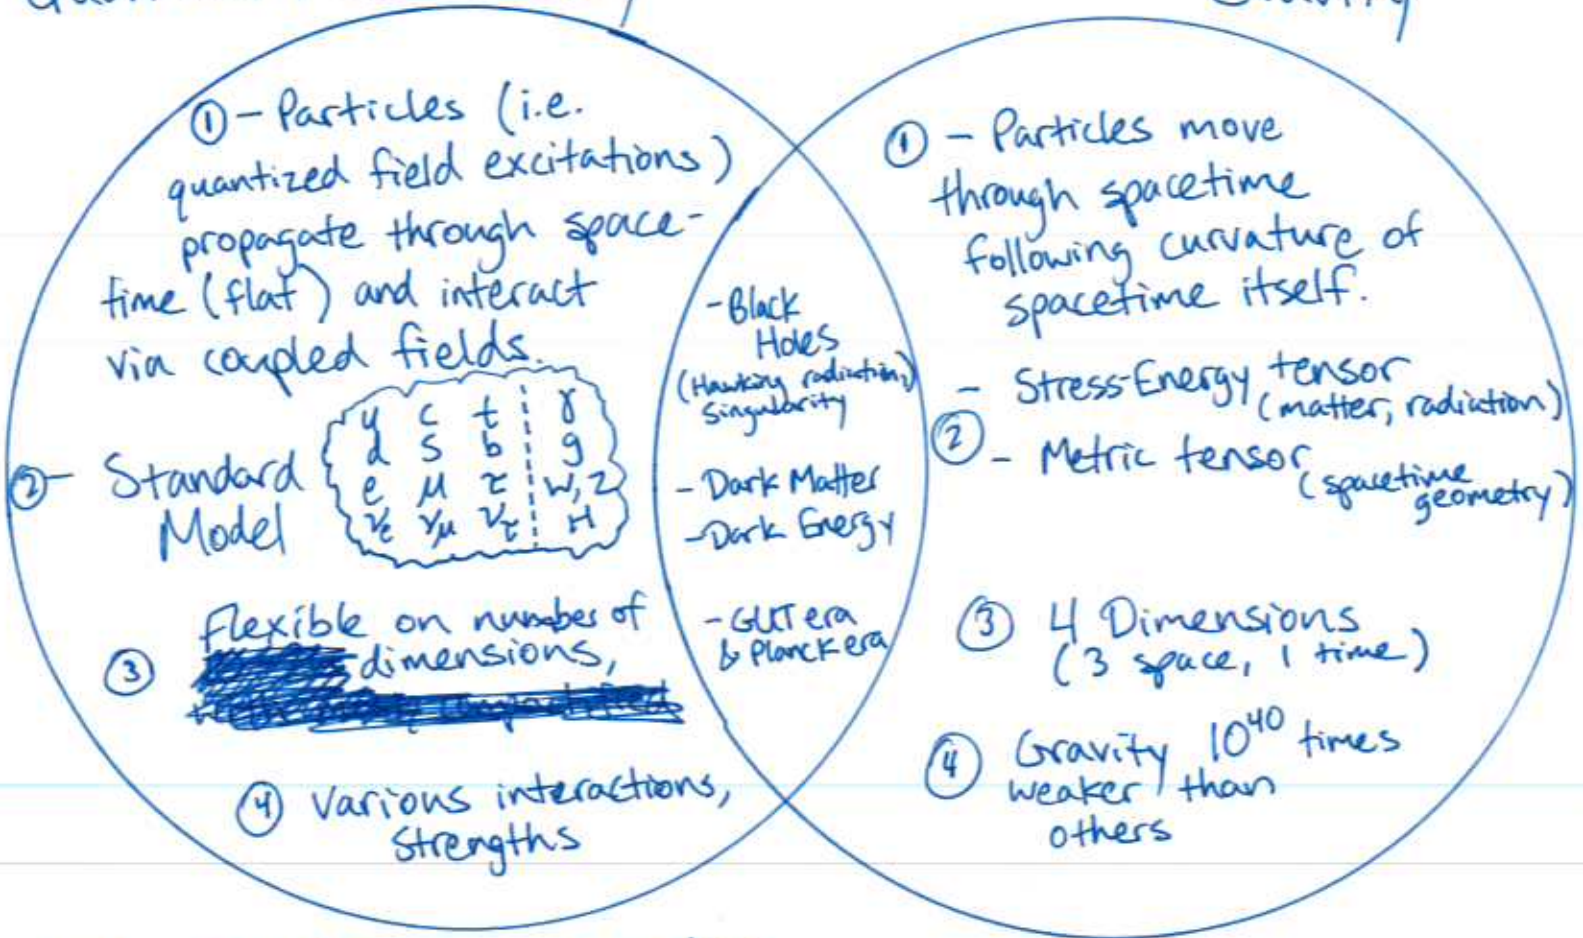 Gravity
① - Particles (i.e.
quantized field excitations)
propagate through space-
time (flat) and interact
via coupled fields.
② - Standard
Model
u c t γ
d s b g
e μ τ W, Z
νe νμ ντ H
③ Flexible on number of
dimensions,
④ Various interactions,
strengths
- Black
Holes
(Hawking radiation,
Singularity
- Dark Matter
- Dark Energy
- GUT era
& Planck era
① - Particles move
through spacetime
following curvature of
spacetime itself.
- Stress-Energy tensor
(matter, radiation)
② - Metric tensor
(spacetime
geometry)
③ 4 Dimensions
(3 space, 1 time)
④ Gravity 10⁴⁰ times
weaker than
others